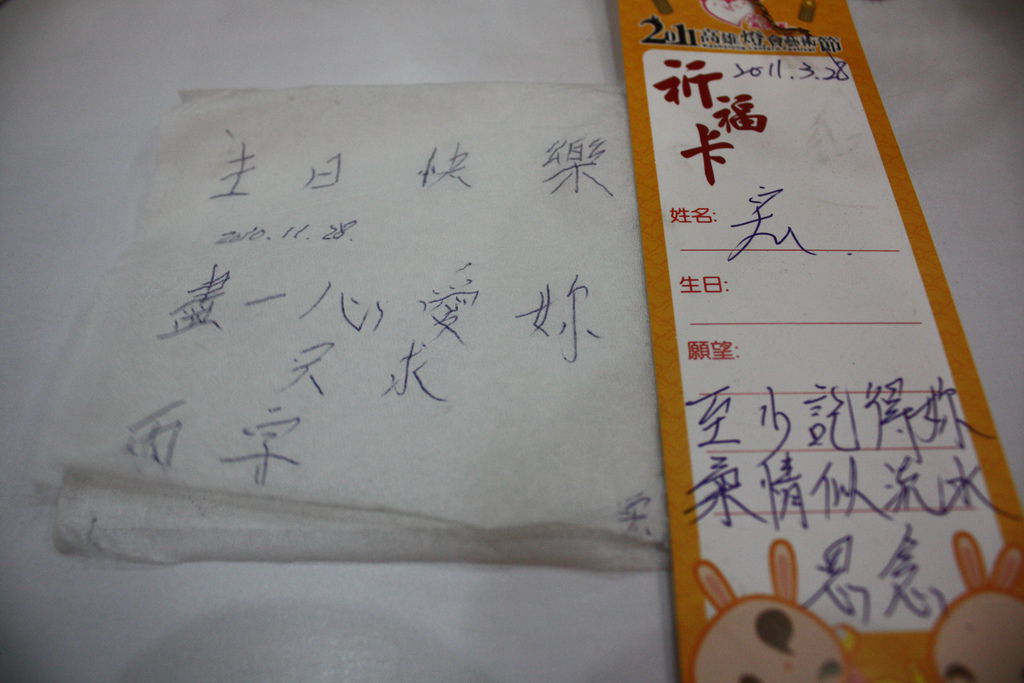 主日快樂
2010.11.28.
盡一心愛妳
只求
兩字
2011高雄燈會藝術館
祈福卡
2011.3.28
姓名:
生日:
願望:
至少記得妳
柔情似流水
思念